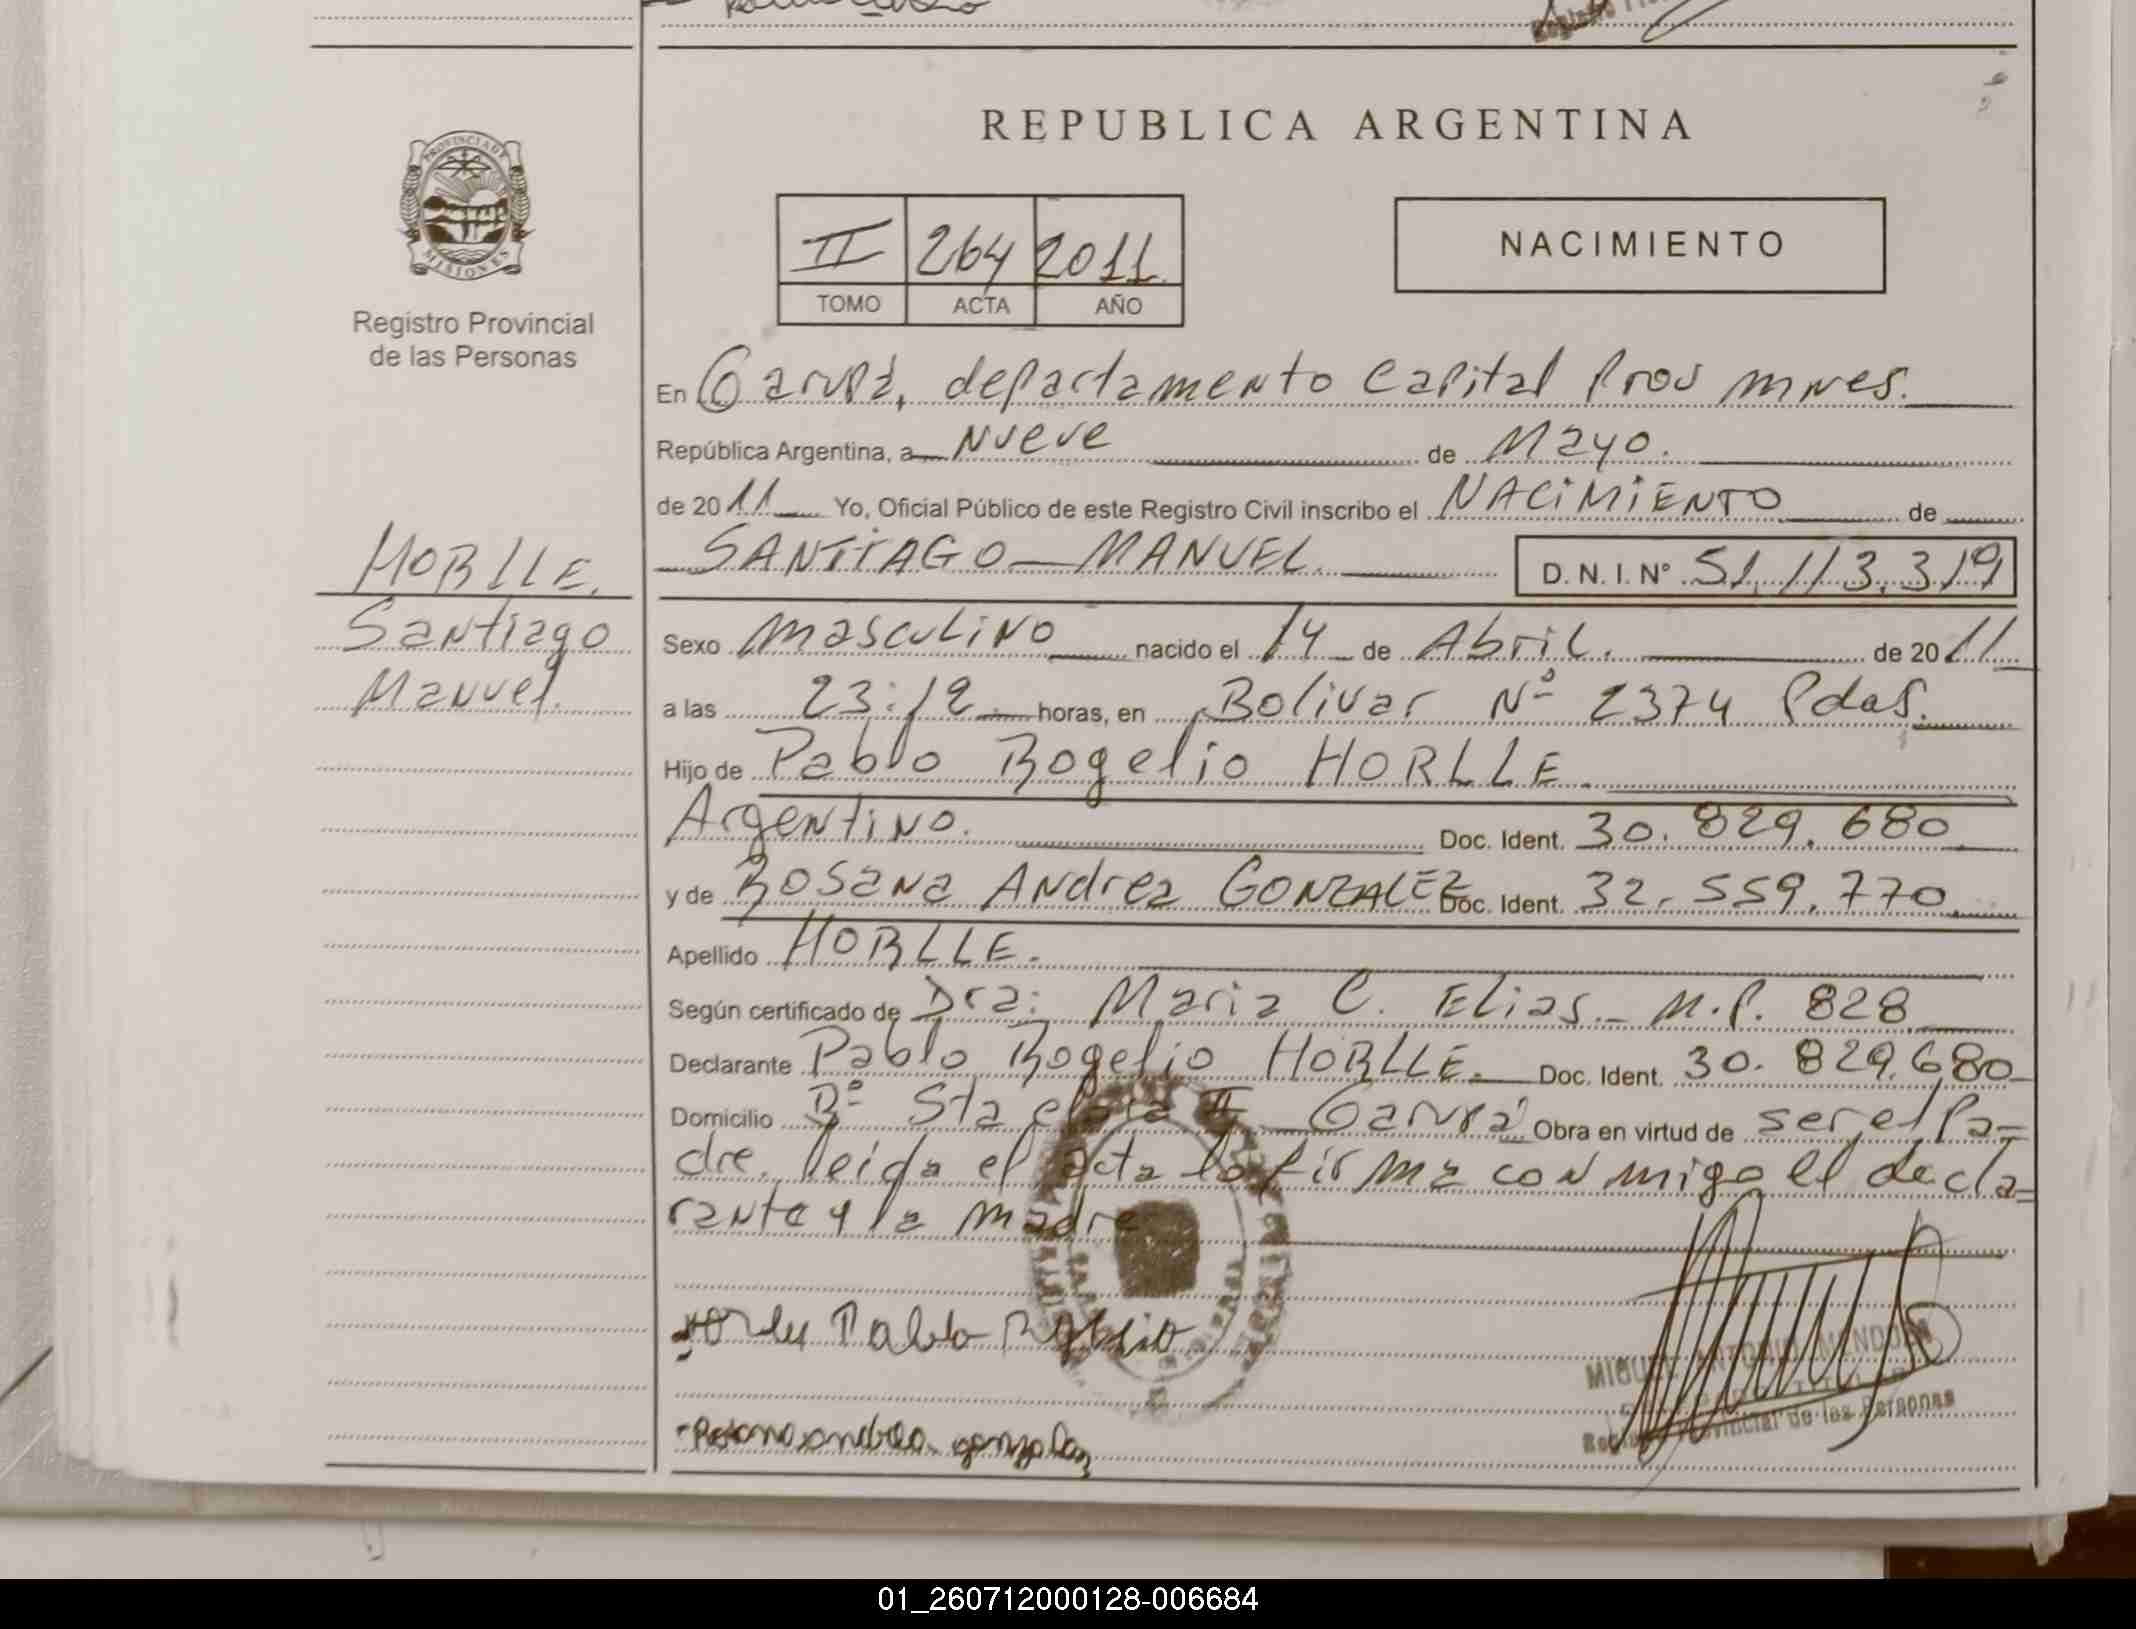 REPUBLICA ARGENTINA
PROVINCIA DE MISIONES
II 264 2011
TOMO ACTA AÑO
NACIMIENTO
Registro Provincial
de las Personas
HORLLE.
Santiago
Manuel.
En Garupá, departamento Capital Prov mnes.
República Argentina, a Nueve de Mayo.
de 2011 Yo, Oficial Público de este Registro Civil inscribo el NACIMIENTO de
SANTIAGO MANUEL. D. N. I. Nº 51.113.319
Sexo masculino nacido el 14 de Abril. de 2011
a las 23:12 horas, en Bolivar Nº 2374 Pdas.
Hijo de Pablo Rogelio HORLLE
Argentino. Doc. Ident. 30.829.680
y de Rosana Andrea GONZALEZ Doc. Ident. 32.559.770
Apellido HORLLE.
Según certificado de Dra: Maria C. Elias - M.P. 828
Declarante Pablo Rogelio HORLLE. Doc. Ident. 30.829.680
Domicilio Bº Sta clara II Garupá Obra en virtud de ser el Pa-
dre, leida el acta lo firma con migo el decla-
rante y la madre
Pablo Rogelio
Rosana andrea gonzalez
MIGUEL ANTONIO MENDOZA
Registro Provincial de las Personas
01_260712000128-006684